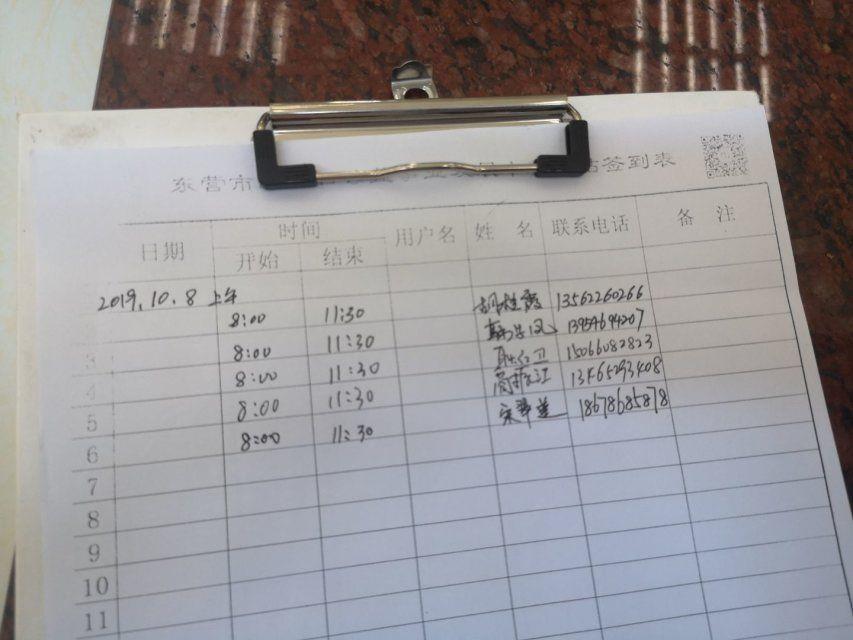 东营市 签到表
日期 时间 用户名 姓 名 联系电话 备 注
开始 结束
2019.10.8 上午
8:00 11:30 胡桂霞 13562260266
3 8:00 11:30 13954694207
4 8:00 11:30 15066082823
5 8:00 11:30 13465293408
6 8:00 11:30 18678685878
7
8
9
10
11